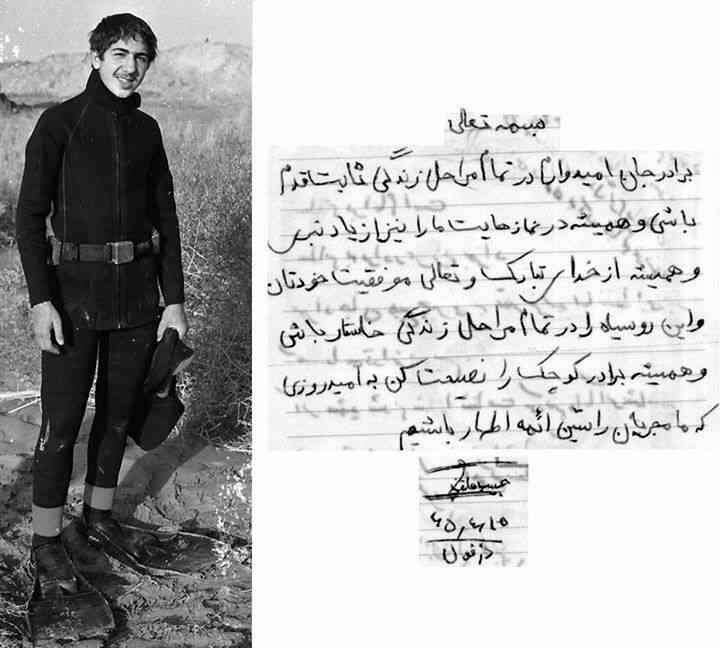 بسمه تعالی
برادر جان امیدوارم در تمام مراحل زندگی ثابت قدم
باشی و همیشه در نمازهایت ما را نیز از یاد نبری
و همیشه از خدای تبارک و تعالی موفقیت خودتان
و این روسیاه را در تمام مراحل زندگی خاستار باشی
و همیشه برادر کوچک را نصیحت کن به امید روزی
که ما مجریان راستین ائمه اطهار باشیم
۶۵٫۴٫۱۵
دزفول